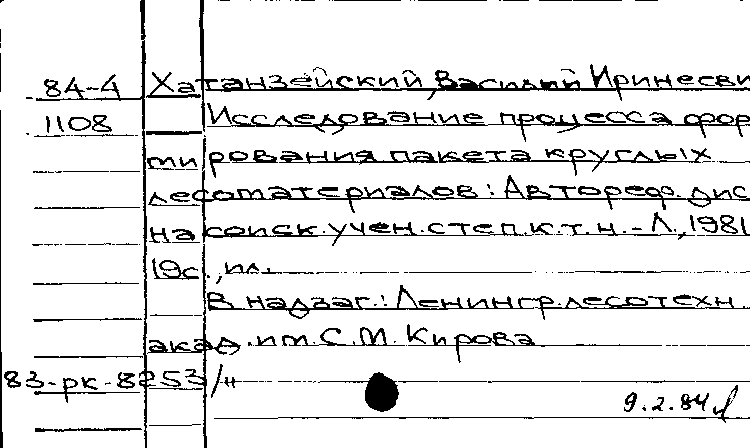 84-4 Хатанзейский, Василий Иринесви
1108 Исследование процесса фор
мирования пакета круглых
лесоматериалов: Автореф. дис
на соиск. учен. степ. к. т. н. - Л., 1981
19с., ил.
В надзаг.: Ленингр. лесотехн.
акад. им. С. М. Кирова
83-рк-8253/н
9.2.84